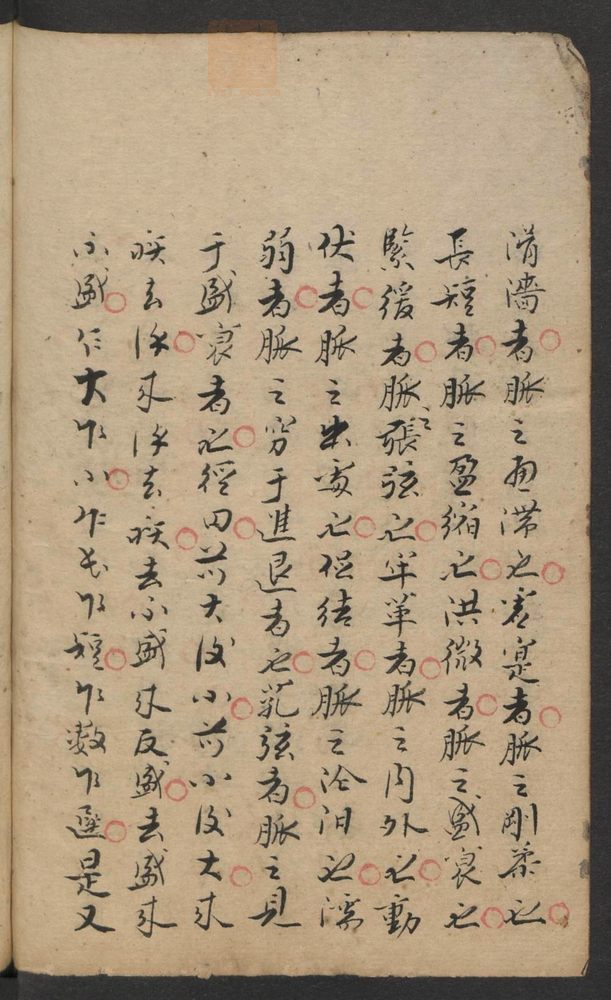 滑濇者脈之通滞也虛寔者脈之剛柔也
長短者脈之盈縮也洪微者脈之盛衰也
緊緩者脈之張弦也牢革者脈之内外也動
伏者脈之出處也促结者脈之也濡
弱者脈之穷于進退者也芤弦者脈之見
于盛衰者也經曰前大後小前小後大来
疾去徐来徐去疾去不盛来反盛去盛来
不盛乍大乍小乍长乍短乍數乍遲是又